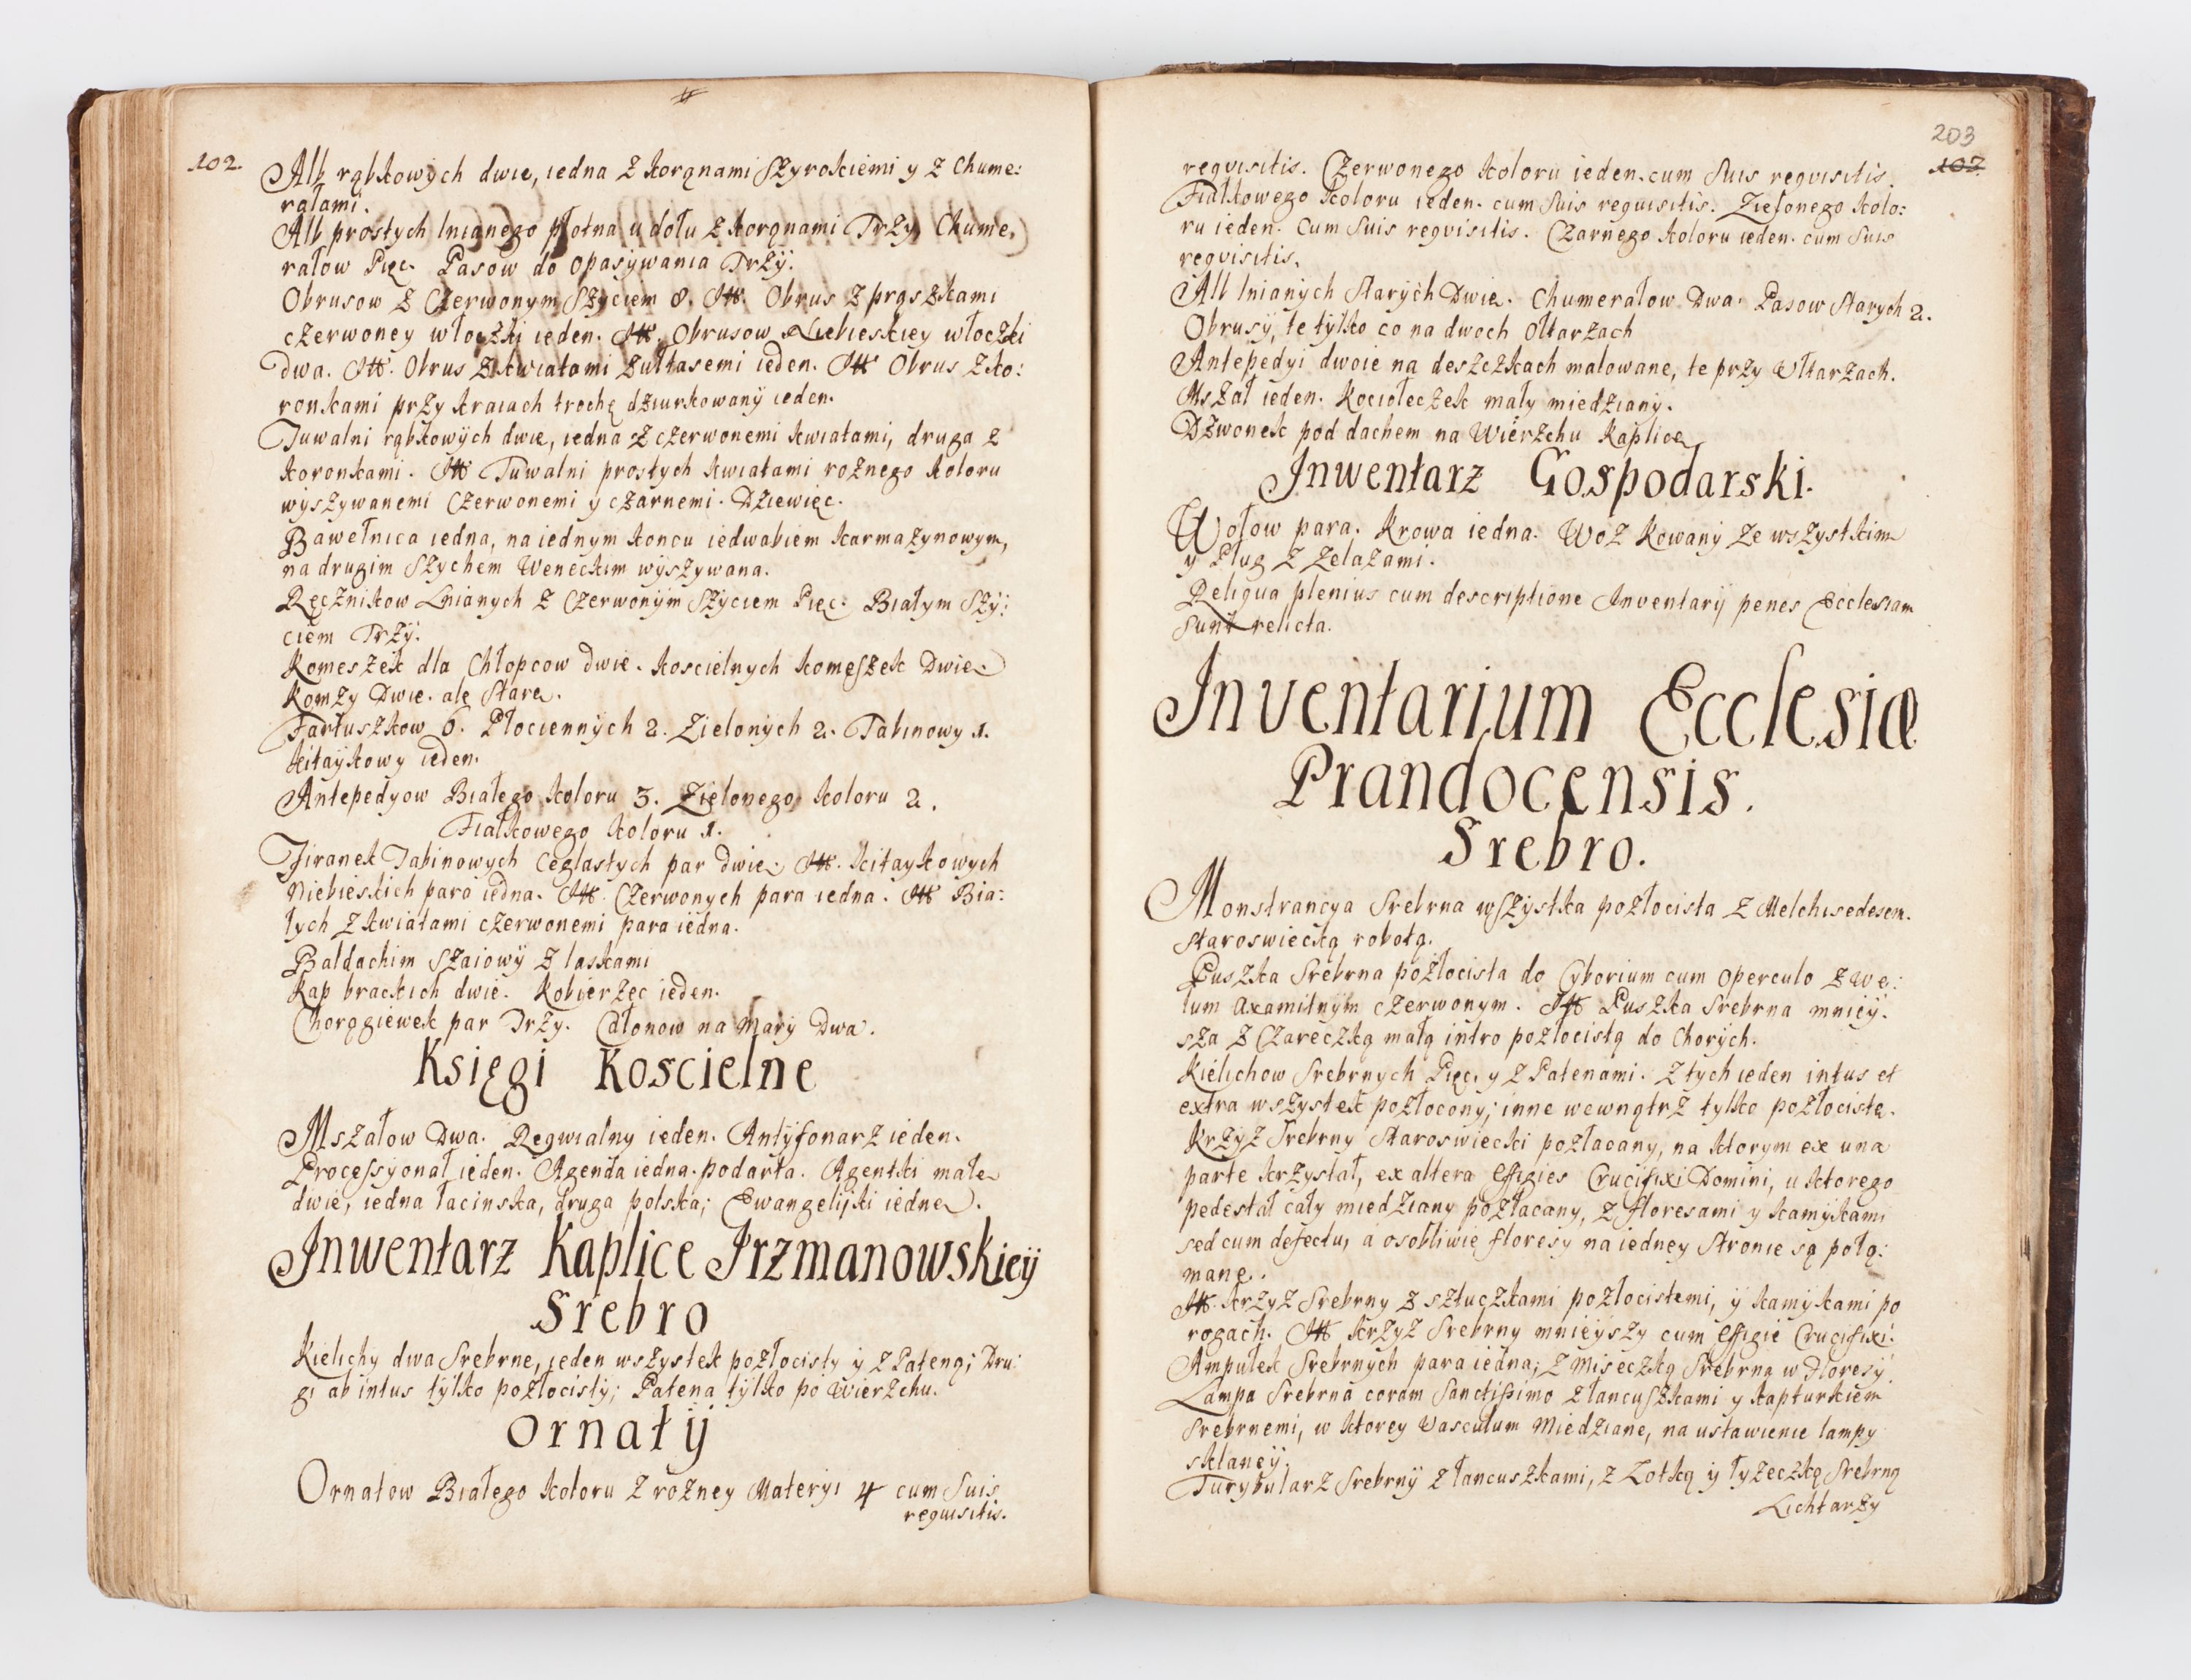 102
Alb rąbkowych dwie, iedna z korąnami szyrokiemi y z Chume:
rałami.
Alb prostych lnianego płotna u dołu z korąnami Trzy. Chume,
rałow Pięc. Pasow do opasywania Trzÿ.
Obrusow z Czerwonym szyciem 8. Itt. Obrus z prąszkami
czerwoney włoczki ieden. Itt. Obrusow Niebieskiey włoczki
Dwa. Itt. Obrus z kwiatami żułtasemi ieden. Itt Obrus z ko:
ronkami przy kraiach trochę dziurkowanÿ ieden.
Tuwalni rąbkowÿch dwie, iedna z czerwonemi kwiatami, druga z
koronkami. Itt Tuwalni prostych kwiatami rożnego koloru
wÿszywanemi Czerwonemi y czarnemi. Dziewięc.
Bawełnica iedna, na iednym koncu iedwabiem karmazynowym,
na drugim sztychem Weneckim wÿszywana.
Ręcznikow Lnianych z Czerwonÿm szyciem Pięc. Białym szÿ:
ciem Trzÿ.
Komeszek dla Chłopcow dwie. koscielnych komeszek Dwie
Komży Dwie. ale stare.
Fartuszkow 6. Płociennÿch 2. Zielonÿch 2. Tabinowy 1.
kitaÿkowy ieden.
Antepedyow Białego koloru 3. Zielonego koloru 2.
Fiałkowego koloru 1.
Firanek Tabinowych ceglastych par dwie Itt. kitaykowych
Niebieskich para iedna. Itt. Czerwonych para iedna. Itt Bia:
łych z kwiatami czerwonemi para iedna.
Baldachim szaiowÿ z laskami
Kap brackich dwie. Kobierzec ieden.
Chorągiewek par Trzy. Całonow na Marÿ Dwa.
Księgi Koscielne
Mszałow Dwa. Regwialny ieden. Antÿfonarz ieden.
Processyonał ieden. Agenda iedna. podarta. Agentki małe
dwie, iedna łacinska, druga polska; Ewangelijki iedne.
Inwentarz Kaplice Jrzmanowskieÿ
Srebro
Kielichy dwa srebrne, ieden wszystek pozłocisty y z Pateną; Dru:
gi ab intus tylko pozłocistÿ; Patena tÿlko po wierzchu.
Ornatÿ
Ornatow Białego koloru z rożney Materyi 4 cum suis
requisitis.
203
103
requisitis. Czerwonego koloru ieden. cum suis requisitis.
Fiałkowego koloru ieden. cum suis requisitis. Zielonego kolo:
ru ieden. Cum suis requisitis. Czarnego koloru ieden. cum suis
requisitis.
Alb lnianÿch starÿch Dwie. Chumerałow Dwa. Pasow starych 2.
Obrusÿ, te tÿlko co na dwoch Ołtarzach
Antepedyi dwoie na deszczkach malowane, te przy Ułtarzach.
Mszał ieden. Kociołeczek mały miedzianÿ.
Dzwonek pod dachem na Wierzchu Kaplice
Inwentarz Gospodarski.
Wołow para. Krowa iedna. Woz Kowanÿ ze wszystkim
y Pług z Zelazami.
Reliqua plenius cum descriptione Inventarÿ penes Ecclesiam
sunt relicta.
Inventarium Ecclesiæ
Prandocensis.
Srebro.
Monstrancya Srebrna wszÿstka pozłocista z Melchisedesem.
staroswiecką robotą.
Puszka Srebrna pozłocista do Cyborium cum operculo z we:
lum axamitnÿm czerwonym. Itt Puszka Srebrna mnieÿ:
sza z Czareczką małą intro pozłocistą do Chorÿch.
Kielichow Srebrnych Pięc, y z Patenami. z tych ieden intus et
extra wszystek pozłocony; inne wewnątrz tylko pozłociste.
Krzÿż Srebrny staroswiecki pozłacany, na ktorym ex una
parte krzystał, ex altera Effigies Crucifixi Domini, u ktorego
pedestał cały miedziany pozłacany, z floresami y kamÿkami
sed cum defectu, a osobliwie floresy na iedney stronie są połą:
mane.
Itt. krzyż srebrny z sztuczkami pozłocistemi, ÿ kamÿkami po
rogach. Itt krzyż srebrny mnieÿszy cum Effigie Crucifixi.
Ampułek Srebrnych para iedna; z miseczką srebrną w Floresÿ.
Lampa srebrna coram Sanctissimo z łancuszkami y kapturkiem
srebrnemi, w ktorey Vasculum Miedziane, na ustawienie lampy
sklaneÿ.
Turybularz srebrnÿ z łancuszkami, z Łotką y łyżeczką srebrną
Lichtarzy